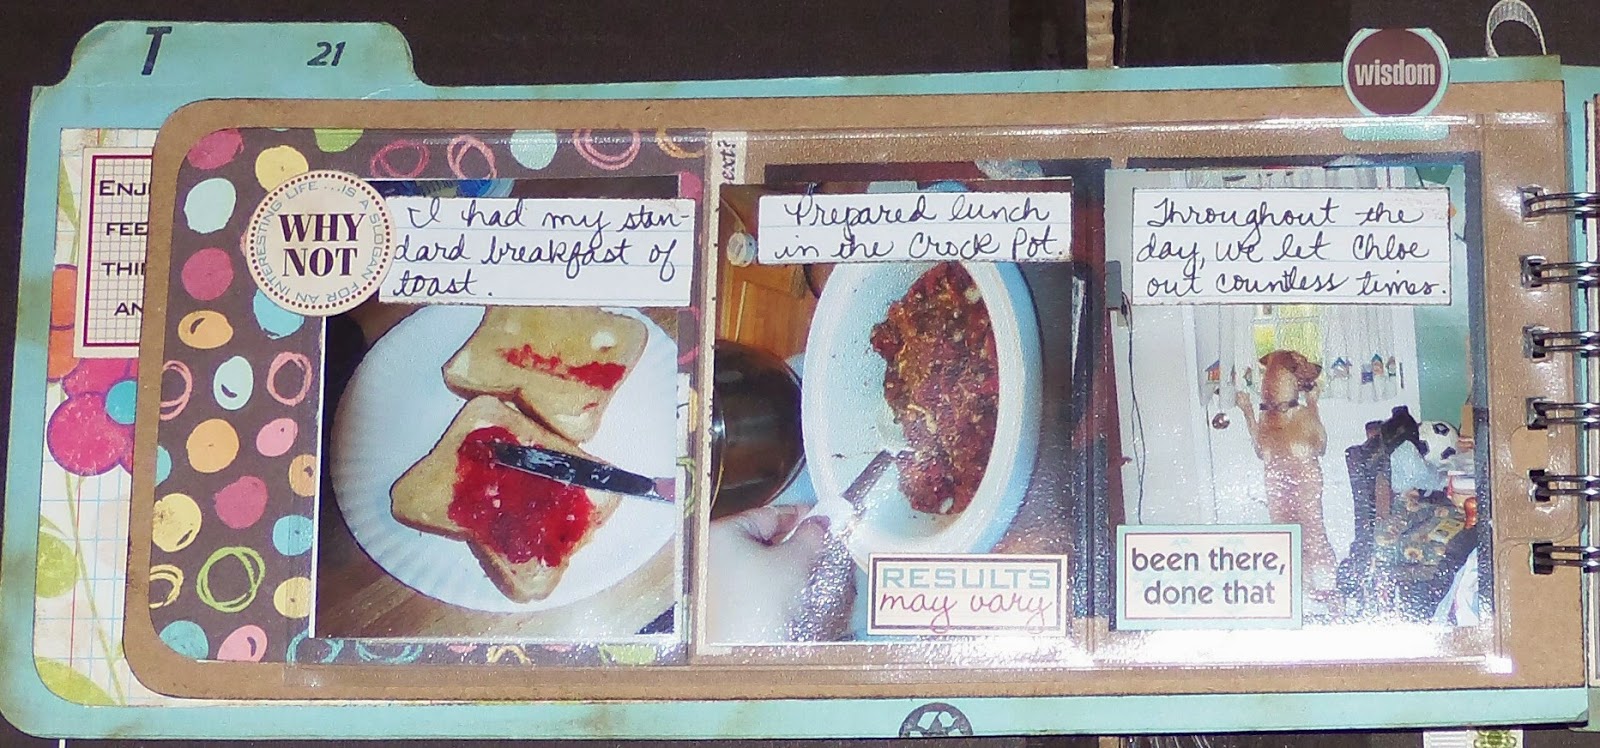 T 21
wisdom
ENJ
FEE
THI
AN
WHY
NOT
INTERESTING LIFE...IS A SLOGAN FOR AN
ext?
I had my stan-
dard breakfast of
toast.
Prepared lunch
in the Crock Pot.
Throughout the
day, we let Chloe
out countless times.
RESULTS
may vary
been there,
done that